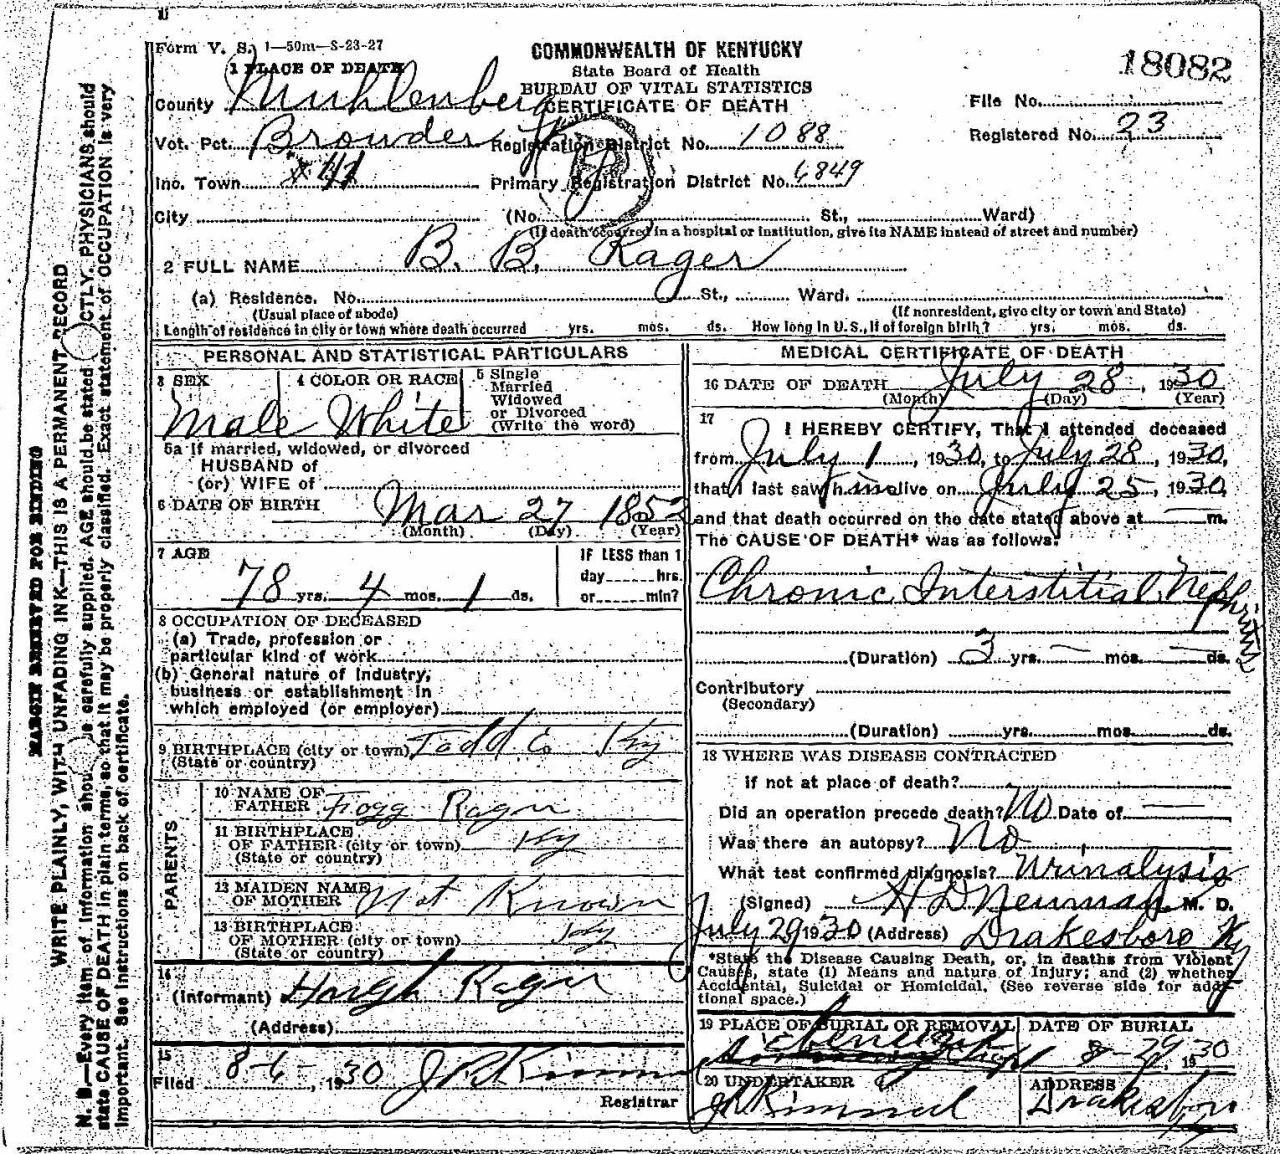 Form V. S. 1—50m—8-23-27
COMMONWEALTH OF KENTUCKY
State Board of Health
BUREAU OF VITAL STATISTICS
CERTIFICATE OF DEATH
18082
1 PLACE OF DEATH
County Muhlenberg
File No.
Vot. Pct. Browder Registration District No. 1088
Registered No. 23
Inc. Town Primary Registration District No. 6849
City (No. St., Ward)
(If death occurred in a hospital or institution, give its NAME instead of street and number)
2 FULL NAME B. B. Rager
(a) Residence. No. St., Ward.
(Usual place of abode) (If nonresident, give city or town and State)
Length of residence in city or town where death occurred yrs. mos. ds. How long in U.S., if of foreign birth? yrs. mos. ds.
PERSONAL AND STATISTICAL PARTICULARS
3 SEX Male
4 COLOR OR RACE White
5 Single
Married
Widowed
or Divorced
(Write the word)
5a If married, widowed, or divorced
HUSBAND of
(or) WIFE of
6 DATE OF BIRTH Mar 27 1852
(Month) (Day) (Year)
7 AGE
78 yrs. 4 mos. 1 ds.
IF LESS than 1
day hrs.
or min?
8 OCCUPATION OF DECEASED
(a) Trade, profession or
particular kind of work
(b) General nature of Industry,
business or establishment in
which employed (or employer)
9 BIRTHPLACE (city or town) Todd Co Ky
(State or country)
PARENTS
10 NAME OF
FATHER Fogg Rager
11 BIRTHPLACE
OF FATHER (city or town) Ky
(State or country)
12 MAIDEN NAME
OF MOTHER Not Known
13 BIRTHPLACE
OF MOTHER (city or town) Ky
(State or country)
14
(Informant) Hugh Rager
(Address)
15
Filed 8-6-, 1930 J R Kimmel
Registrar
MEDICAL CERTIFICATE OF DEATH
16 DATE OF DEATH July 28, 1930
(Month) (Day) (Year)
17 I HEREBY CERTIFY, That I attended deceased
from July 1, 1930, to July 28, 1930,
that I last saw him alive on July 25, 1930,
and that death occurred on the date stated above at — m.
The CAUSE OF DEATH* was as follows:
Chronic Interstitial Nephritis
(Duration) 3 yrs. — mos. — ds.
Contributory
(Secondary)
(Duration) yrs. mos. ds.
18 WHERE WAS DISEASE CONTRACTED
if not at place of death?
Did an operation precede death? No Date of —
Was there an autopsy? No
What test confirmed diagnosis? Urinalysis
(Signed) H D Newman M. D.
July 29 1930 (Address) Drakesboro Ky
*State the Disease Causing Death, or, in deaths from Violent
Causes, state (1) Means and nature of Injury; and (2) whether
Accidental, Suicidal or Homicidal. (See reverse side for addi-
tional space.)
19 PLACE OF BURIAL OR REMOVAL Ebenezer
DATE OF BURIAL
8-29, 1930
20 UNDERTAKER
J R Kimmel
ADDRESS
Drakesboro
MARGIN RESERVED FOR BINDING
WRITE PLAINLY, WITH UNFADING INK—THIS IS A PERMANENT RECORD
N. B.—Every item of information should be carefully supplied. AGE should be stated EXACTLY. PHYSICIANS should
state CAUSE OF DEATH in plain terms, so that it may be properly classified. Exact statement of OCCUPATION is very
important. See instructions on back of certificate.